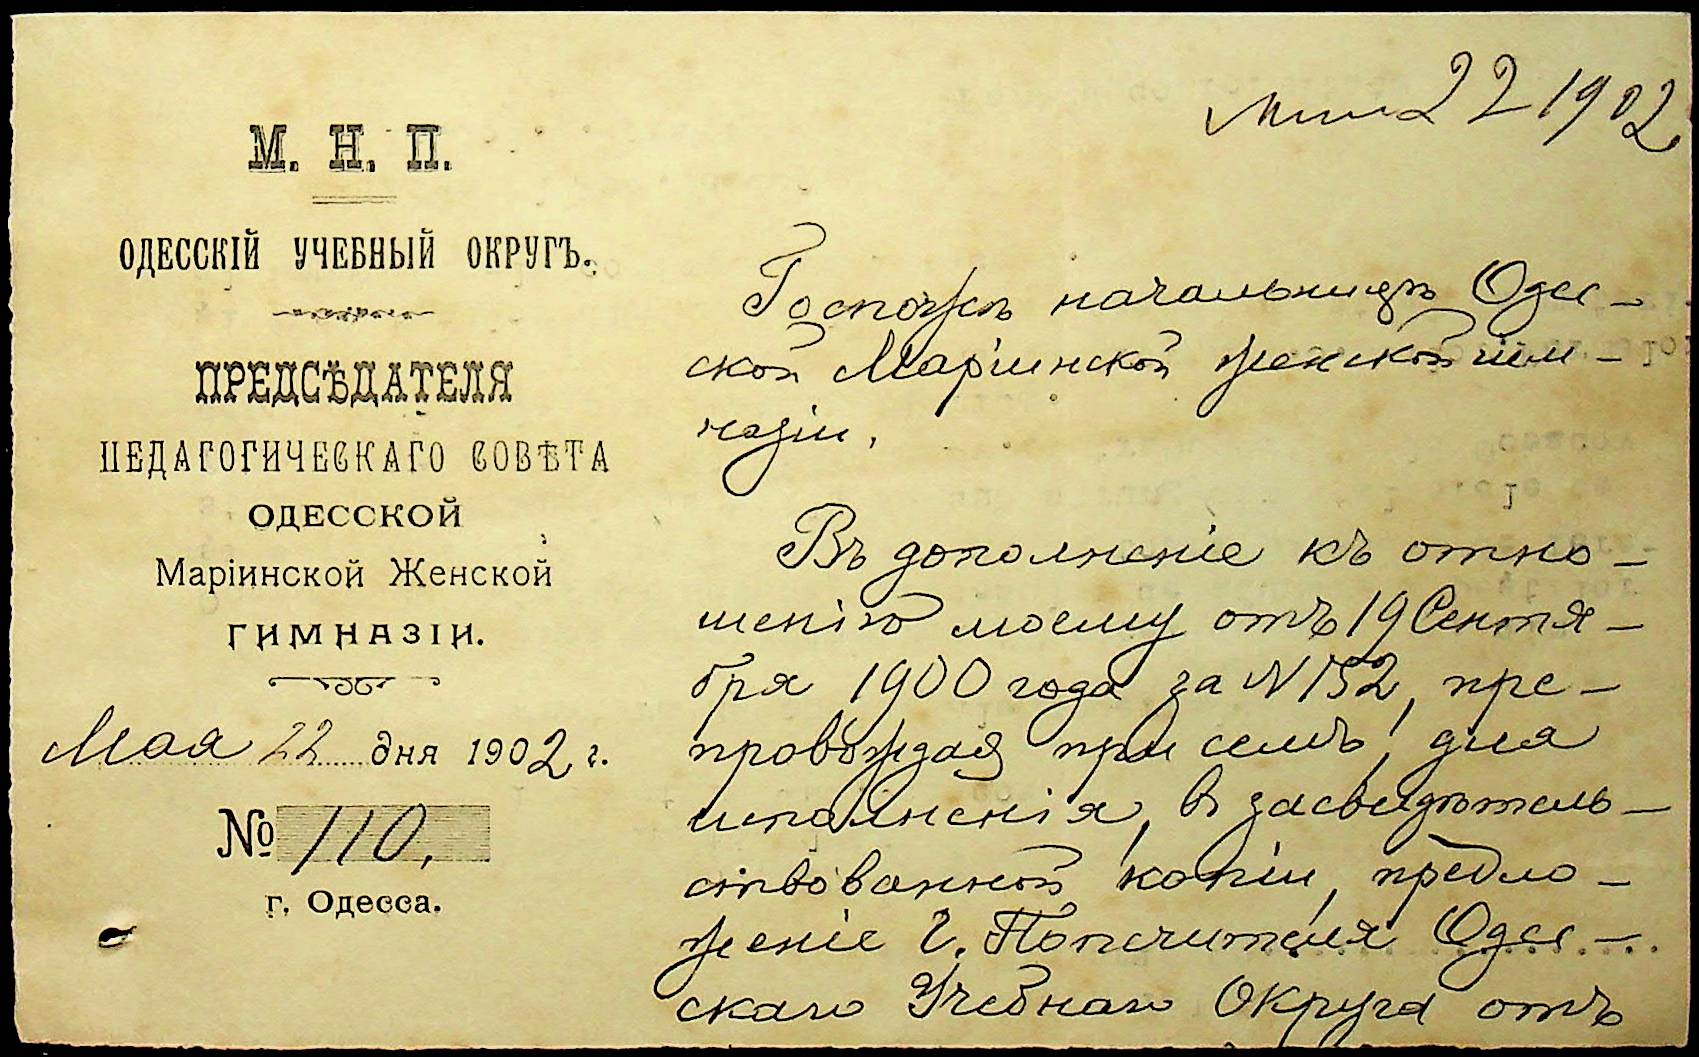 М. Н. П.
ОДЕССКІЙ УЧЕБНЫЙ ОКРУГЪ.
ПРЕДСѢДАТЕЛЯ
ПЕДАГОГИЧЕСКАГО СОВѢТА
ОДЕССКОЙ
Маріинской Женской
ГИМНАЗІИ.
Мая 22 дня 1902 г.
№ 110.
г. Одесса.
22 1902
Госпожѣ начальницѣ Одес-
ской Маріинской женской гим-
назіи.
Въ дополненіе къ отно-
шенію моему отъ 19 Сентя-
бря 1900 года за N 152, пре-
провождая при семъ, для
исполненія, въ засвидѣтель-
ствованной копіи, предло-
женіе Г. Попечителя Одес-
скаго Учебнаго Округа отъ